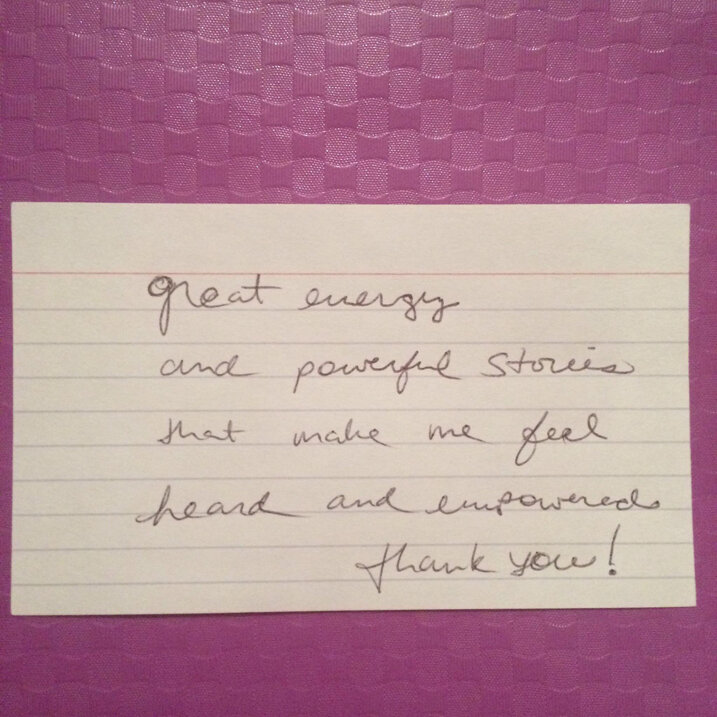 great energy
and powerful stories
that make me feel
heard and empowered.
thank you!